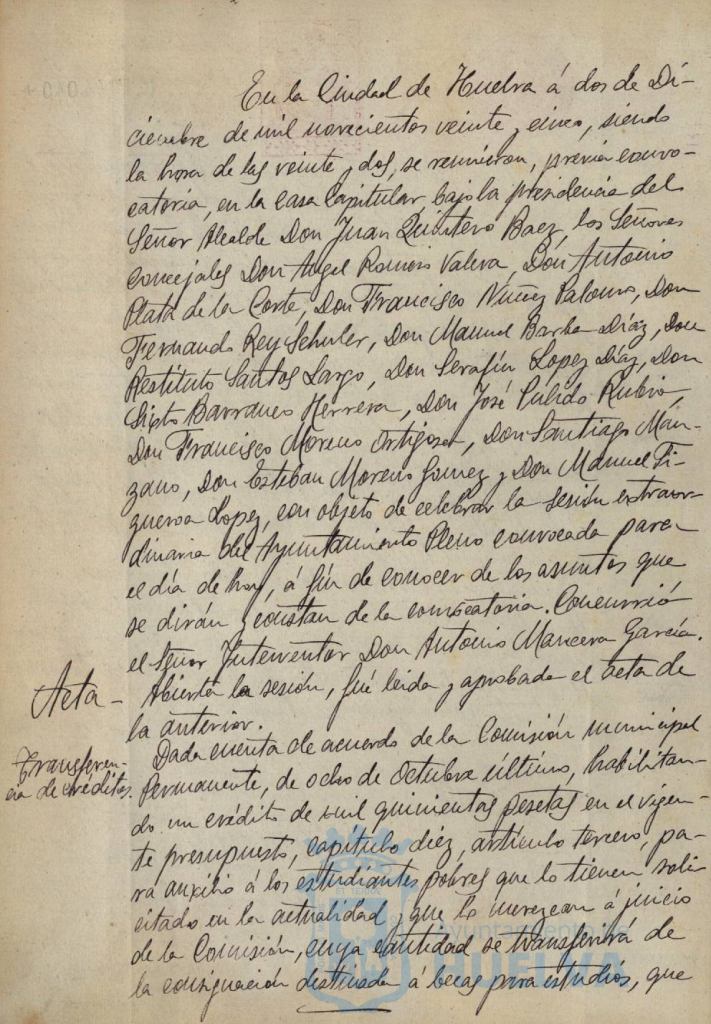 En la Ciudad de Huelva á dos de Di-
ciembre de mil novecientos veinte y cinco, siendo
la hora de las veinte y dos, se reunieron, previa convo-
catoria, en la casa Capitular, bajo la presidencia del
Señor Alcalde Don Juan Quintero Baez, los Señores
Concejales Don Angel Ramos Valera, Don Antonio
Plata de la Corte, Don Francisco Nuñez Palomo, Don
Fernando Rey Schuler, Don Manuel Barba Díaz, Don
Restituto Santos Largo, Don Serafín Lopez Díaz, Don
Sixto Barranco Herrera, Don José Pulido Rubio,
Don Francisco Moreno Ortigosa, Don Santiago Man-
zano, Don Esteban Moreno Gomez y Don Manuel Fi-
gueroa Lopez, con objeto de celebrar la sesión extraor-
dinaria del Ayuntamiento Pleno convocada para
el día de hoy, á fin de conocer de los asuntos que
se dirán y constan de la convocatoria. Concurrió
el Señor Interventor Don Antonio Mancera García.
Acta - Abierta la sesión, fué leida y aprobada el acta de
la anterior.
Transferen-
cia de créditos.
Dada cuenta de acuerdo de la Comisión municipal
Permanente, de ocho de Octubre último, habilitan-
do un crédito de mil quinientas pesetas en el vigen-
te presupuesto, capítulo diez, artículo tercero, pa-
ra auxilio á los estudiantes pobres que lo tienen soli-
citado en la actualidad y que lo merezcan á juicio
de la Comisión, cuya cantidad se transferirá de
la consignación destinada á becas para estudios, que
Ayuntamiento de
HUELVA